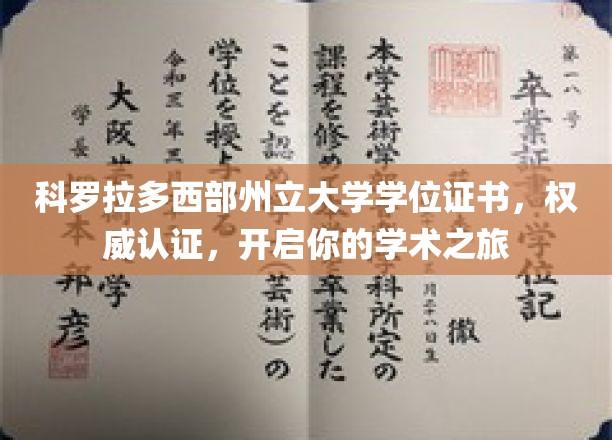 科罗拉多西部州立大学学位证书，权
威认证，开启你的学术之旅
第一八号
卒業証書・学位記
徹
月二十八日生
本学芸術学
学科所定の
課程を修め
卒業した
ことを認め
（芸術）の
学位を授与
る
令和三年三
大阪芸
学
学長
本邦彦